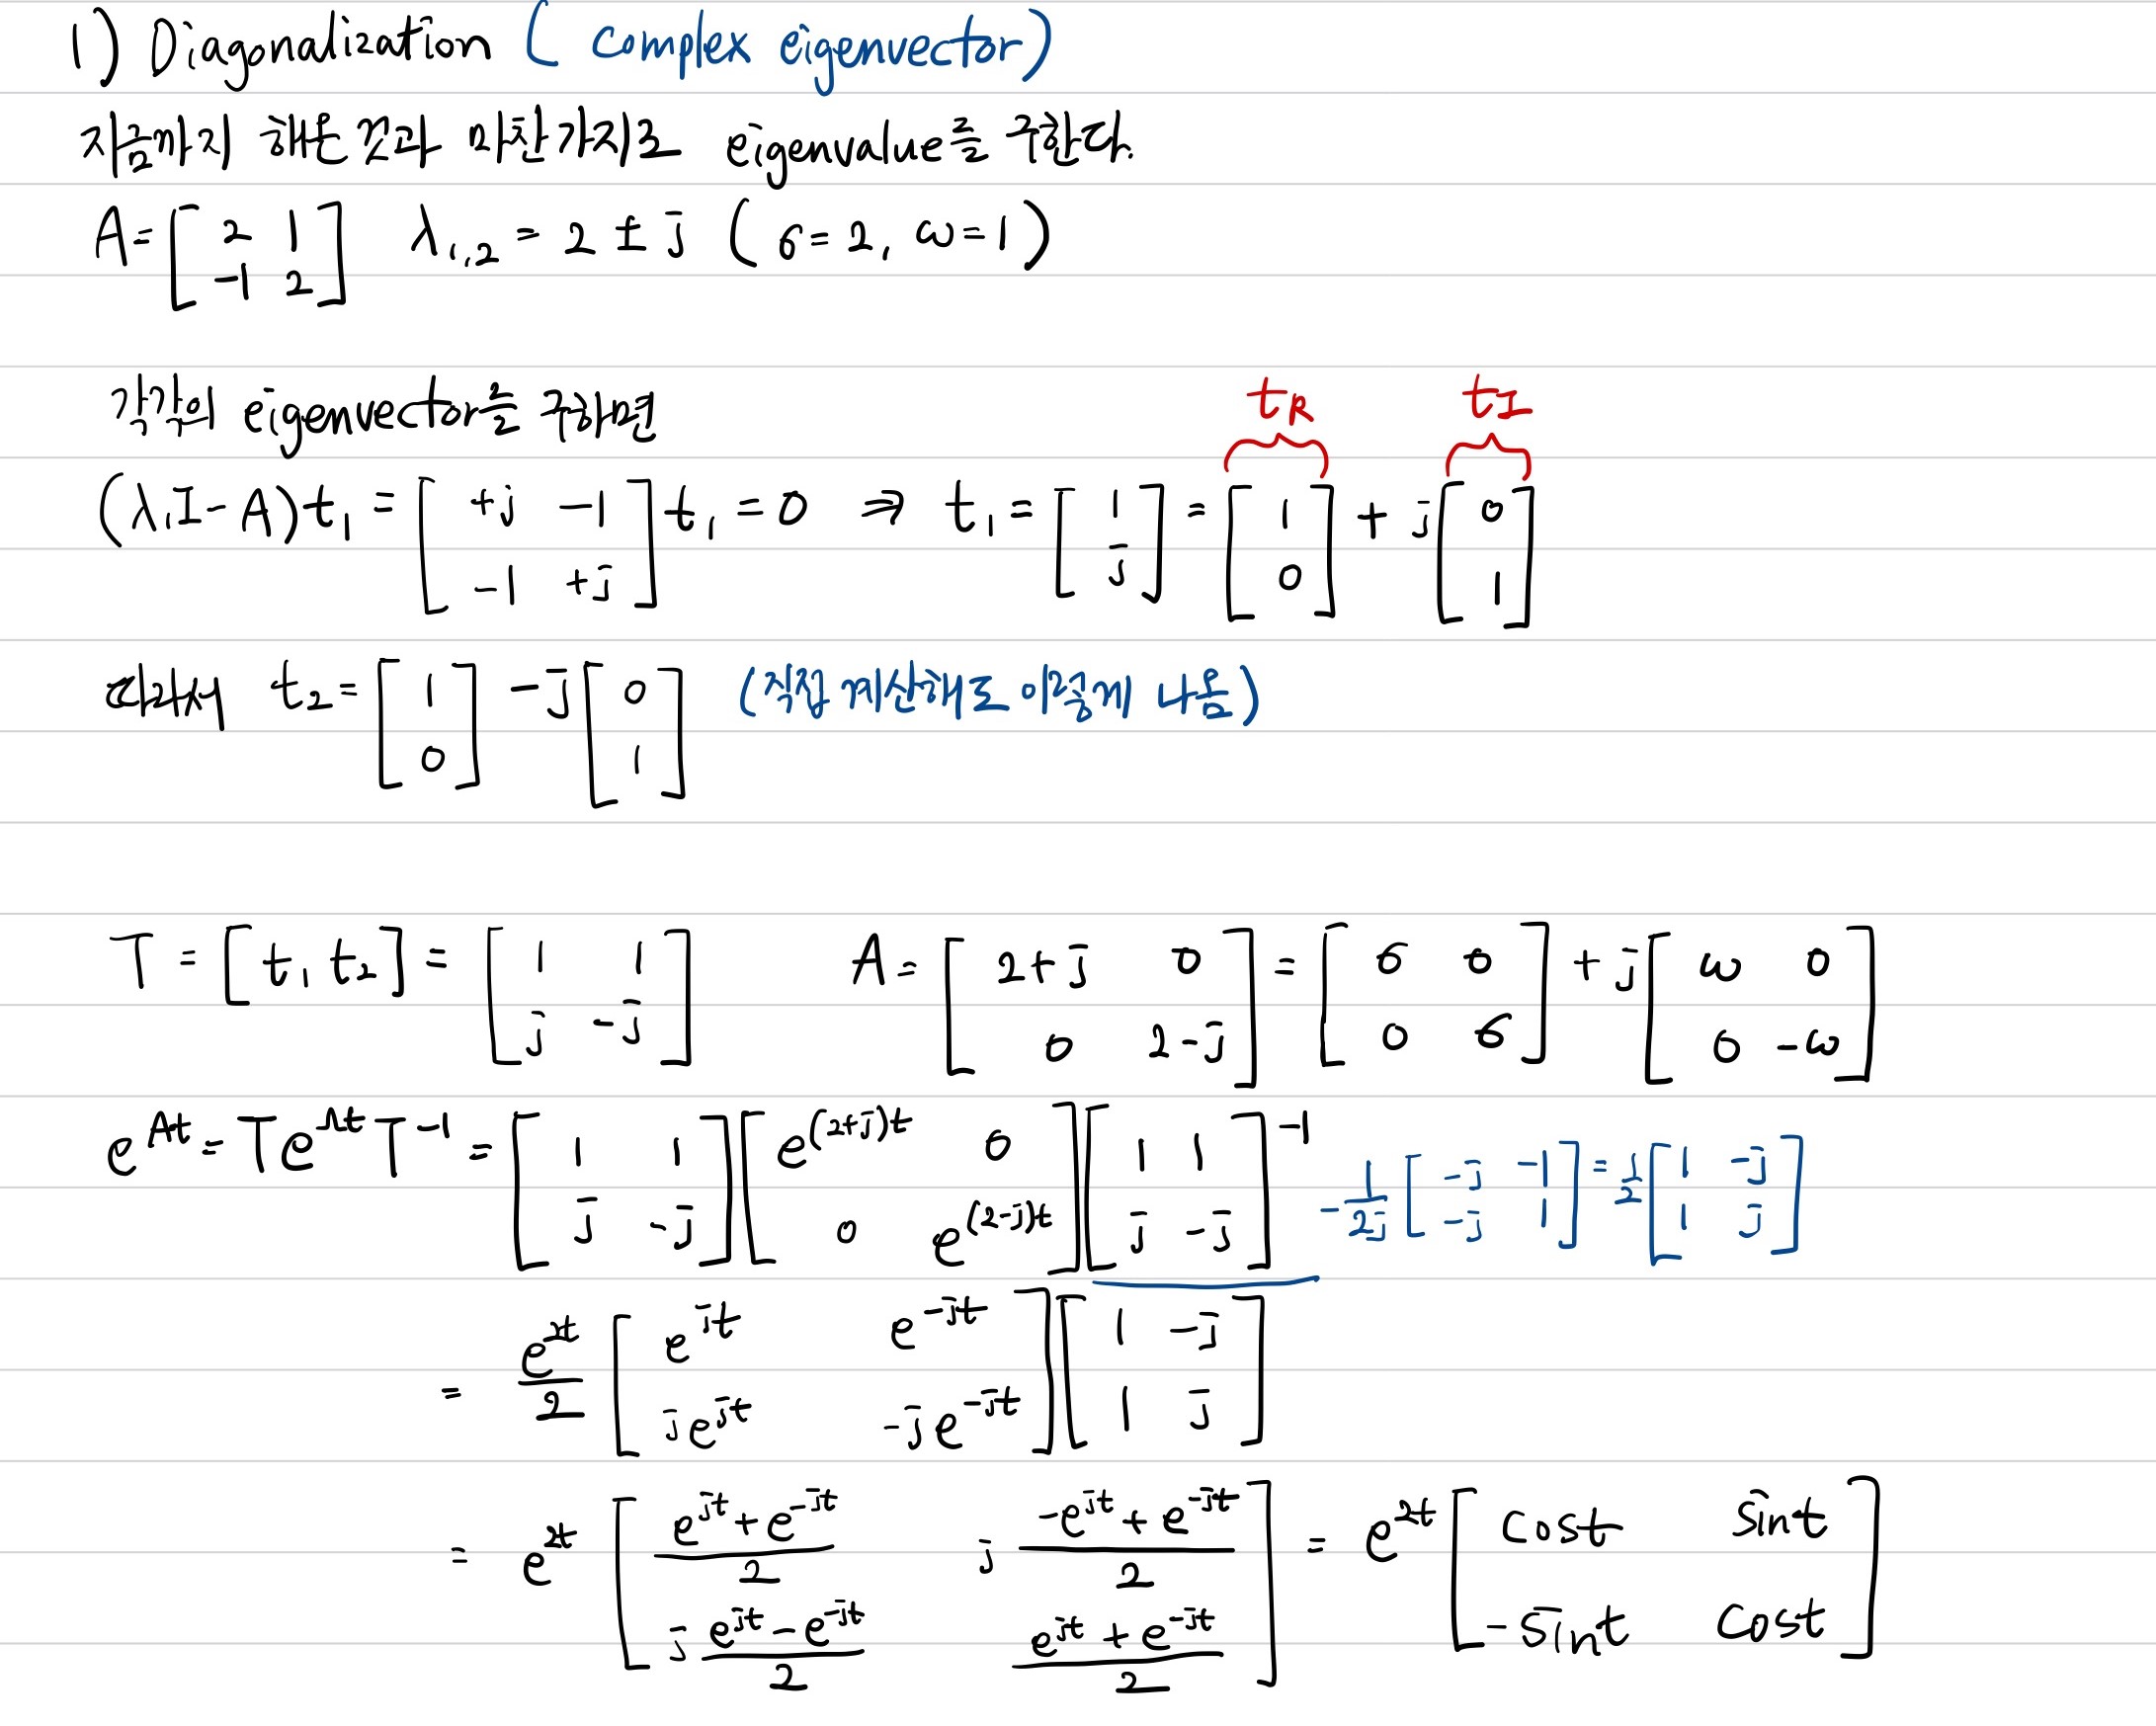 1) Diagonalization ( Complex eigenvector)
지금까지 해온 것과 마찬가지로 eigenvalue를 구한다.
A = [ 2 1 ; -1 2 ] λ₁,₂ = 2 ± j ( σ = 2, ω = 1 )
t_R t_I
각각의 eigenvector를 구하면
(λ₁I - A) t₁ = [ +j -1 ; -1 +j ] t₁ = 0 ⇒ t₁ = [ 1 ; j ] = [ 1 ; 0 ] + j [ 0 ; 1 ]
따라서 t₂ = [ 1 ; 0 ] - j [ 0 ; 1 ] (직접 계산해도 이렇게 나옴)
T = [ t₁ t₂ ] = [ 1 1 ; j -j ] Λ = [ 2+j 0 ; 0 2-j ] = [ σ 0 ; 0 σ ] + j [ ω 0 ; 0 -ω ]
e^{At} = T e^{Λt} T^{-1} = [ 1 1 ; j -j ] [ e^{(2+j)t} 0 ; 0 e^{(2-j)t} ] [ 1 1 ; j -j ]^{-1} -1/2j [ -j -1 ; -j 1 ] = 1/2 [ 1 -j ; 1 j ]
= e^{2t}/2 [ e^{jt} e^{-jt} ; je^{jt} -je^{-jt} ] [ 1 -j ; 1 j ]
= e^{2t} [ (e^{jt} + e^{-jt})/2 j (-e^{jt} + e^{-jt})/2 ; j (e^{jt} - e^{-jt})/2 (e^{jt} + e^{-jt})/2 ] = e^{2t} [ cost sint ; -sint cost ]